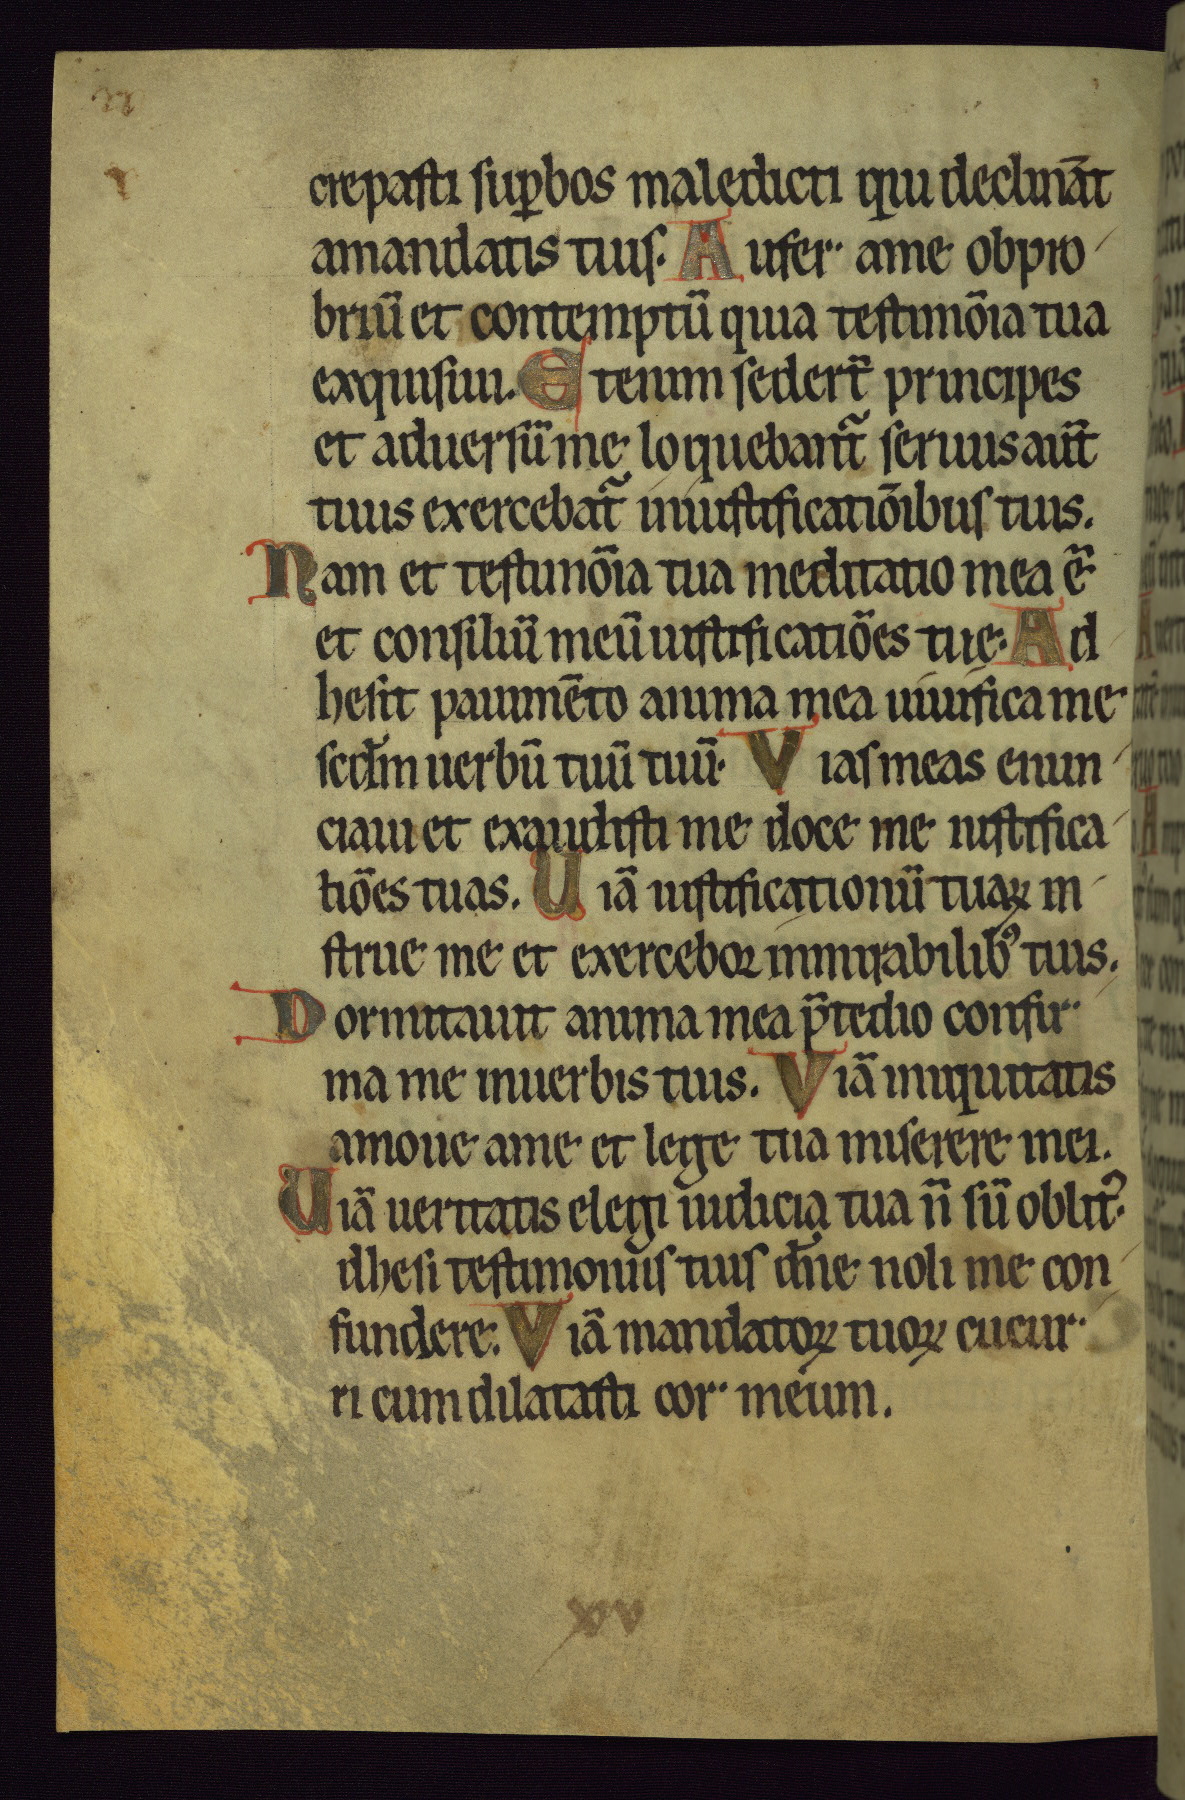 crepasti suꝑbos maledicti qui declināt
amandatis tuis. Aufer ame obpro
briū et contemptū quia testimōia tua
exquisiui. Etenim sedert̄ principes
et aduersū me loquebant̄ seruus aūt
tuus exercebat̄ iniustificatiōibus tuis.
Nam et testimōia tua meditatio mea ē
et consiliū meū iustificatiōes tue. Ad
hesit pauimēto anima mea uiuifica me
scd̄m uerbū tuū tuū. Vias meas enun
ciaui et exaudisti me doce me iustifica
tiōes tuas. Uiā iustificationū tuaꝝ in
strue me et exercebor inmirabilibꝰ tuis.
Dormitauit anima mea p̄ tedio confir
ma me inuerbis tuis. Viā iniquitatis
amoue ame et lege tua miserere mei.
Uiā ueritatis elegi iudicia tua n̄ sū oblitꝰ.
dhesi testimoniis tuis dn̄e noli me con
fundere. Viā mandatoꝝ tuoꝝ cucur
ri cum dilatasti cor meum.
xv